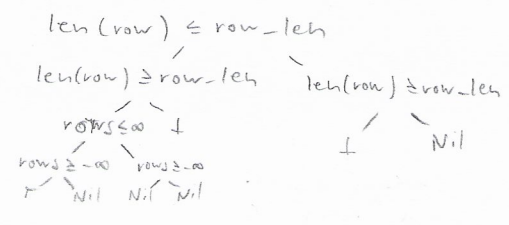 len(row) ≤ row_len
len(row) ≥ row_len len(row) ≥ row_len
rows ≤ ∞ 1 1 Nil
rows ≥ -∞ rows ≥ -∞
r Nil Nil Nil